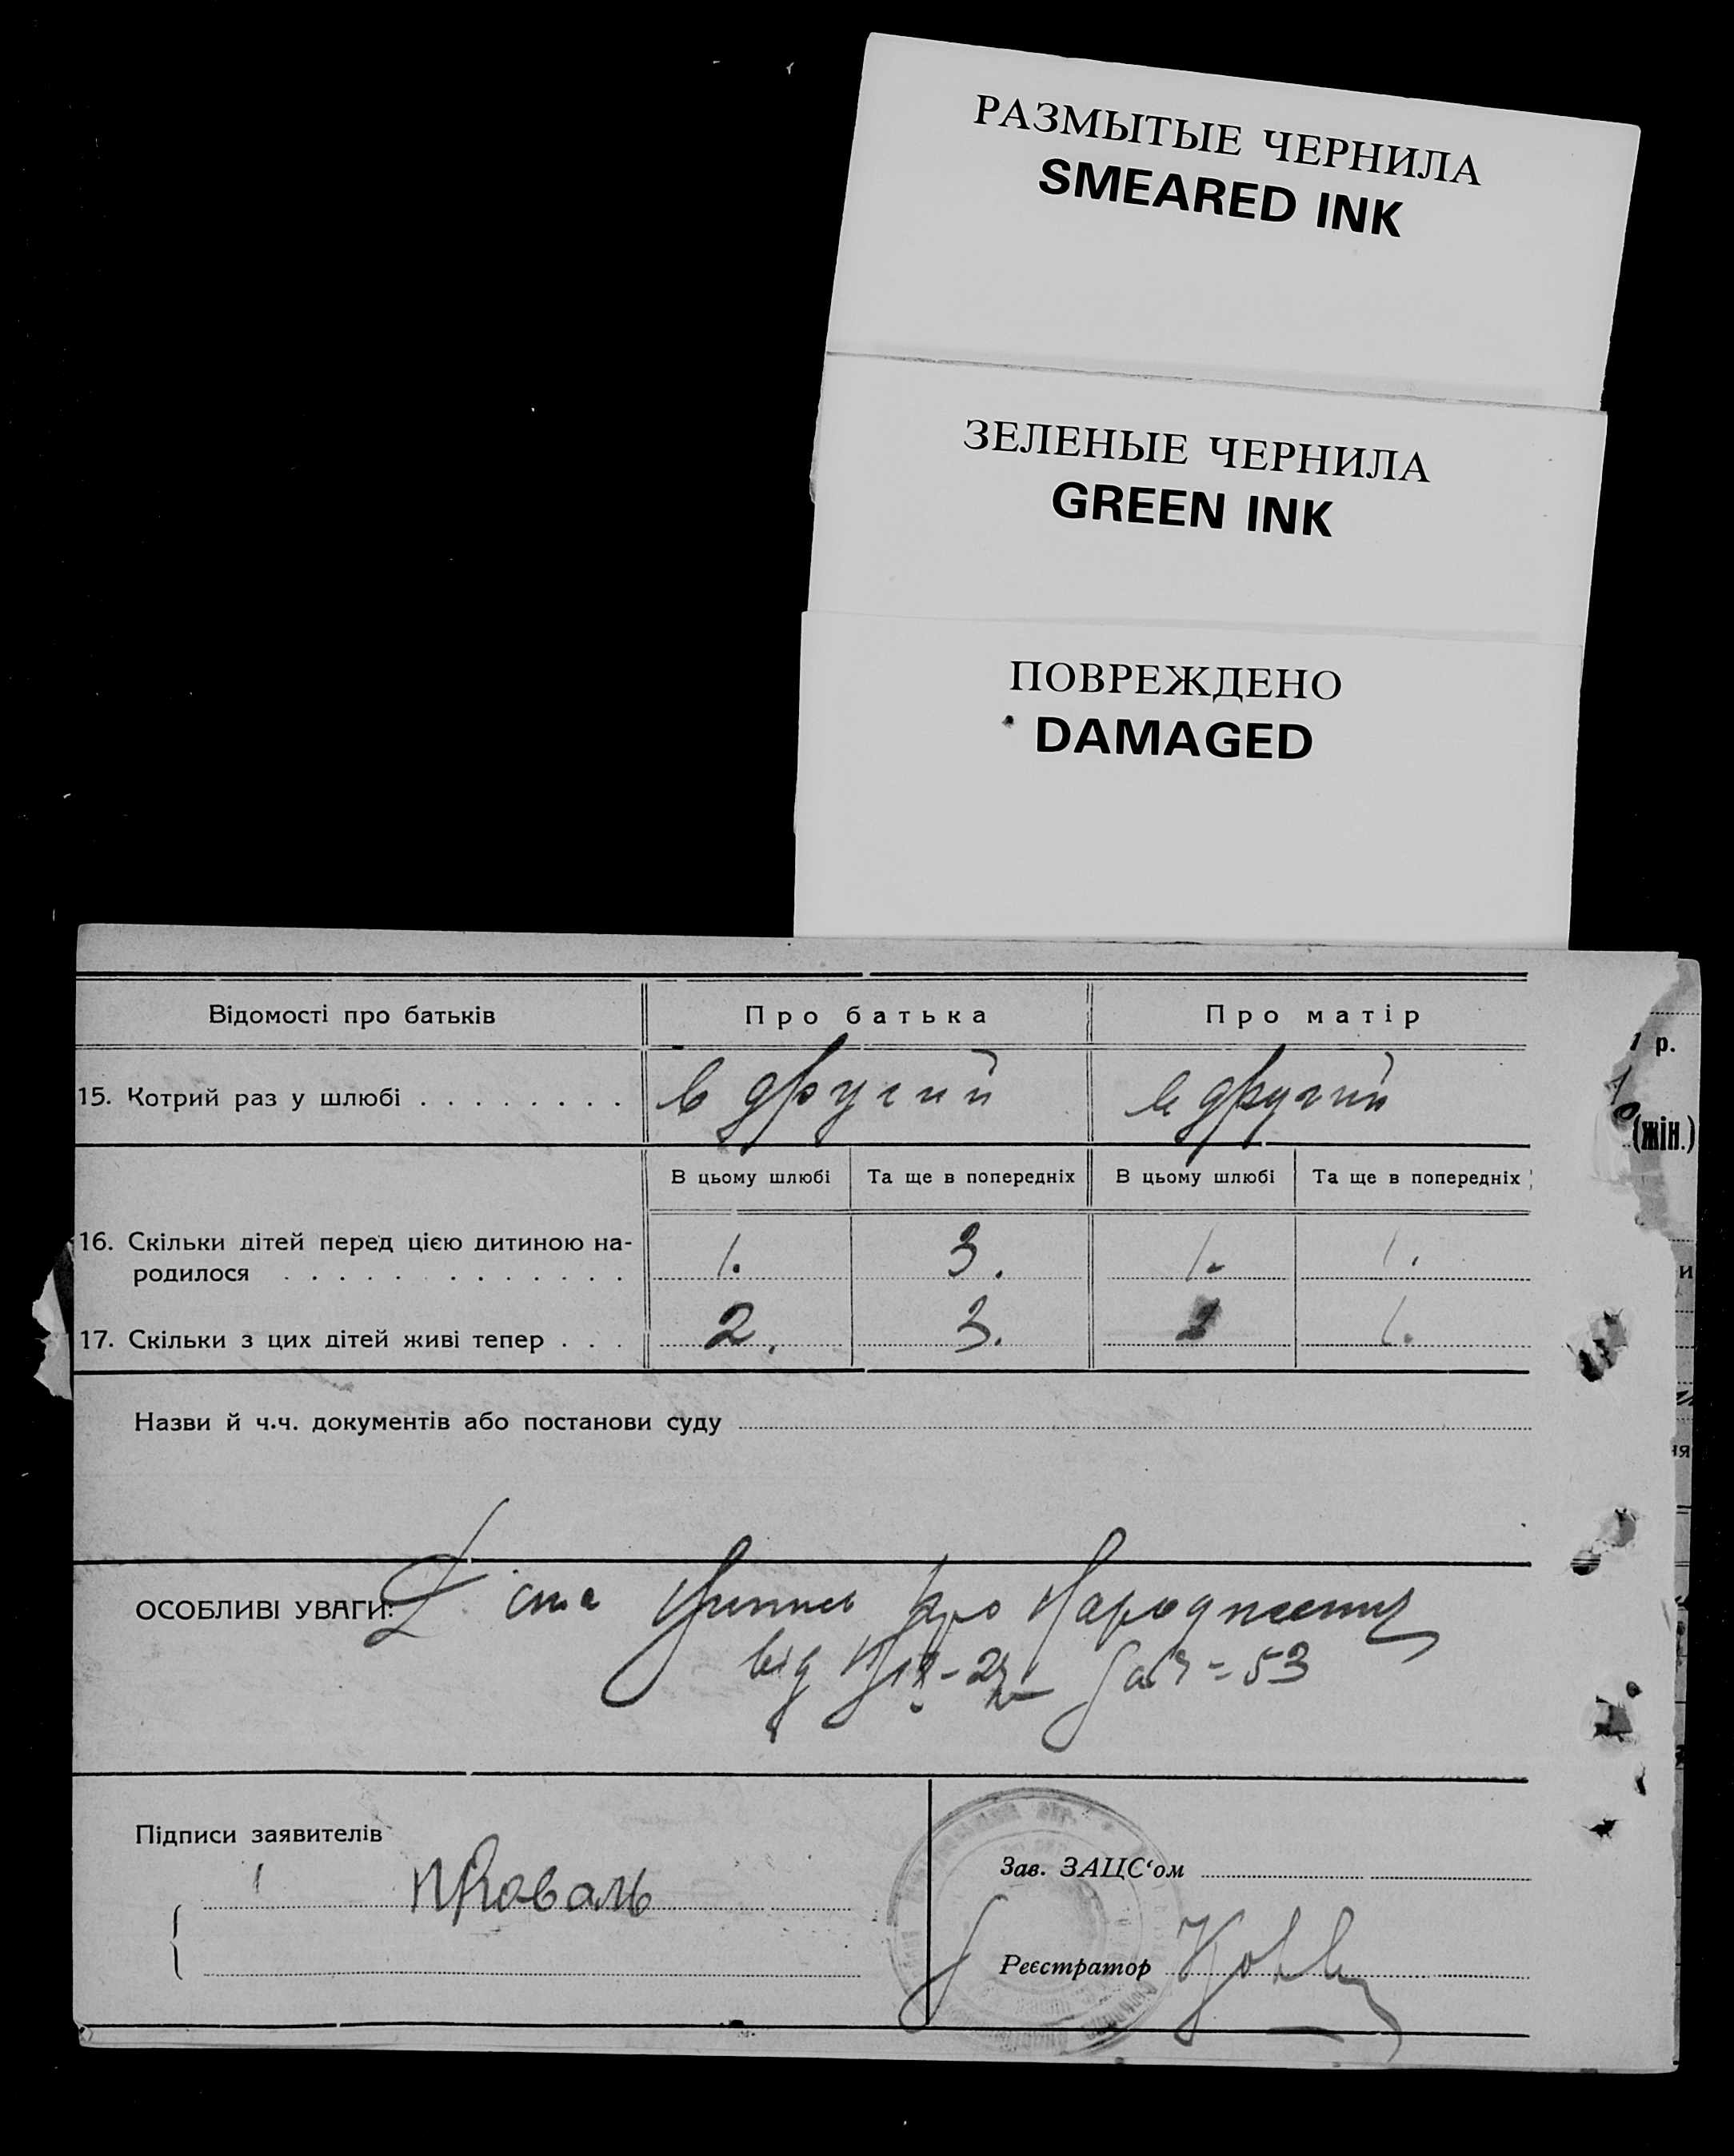 РАЗМЫТЫЕ ЧЕРНИЛА
SMEARED INK
ЗЕЛЕНЫЕ ЧЕРНИЛА
GREEN INK
ПОВРЕЖДЕНО
DAMAGED
Відомості про батьків Про батька Про матір
1 р.
15. Котрий раз у шлюбі . . . . . . . . в другий в другий
(жін.)
В цьому шлюбі Та ще в попередніх В цьому шлюбі Та ще в попередніх
16. Скільки дітей перед цією дитиною на-
родилося . . . . . . . . . . . . . 1. 3. 1. 1.
17. Скільки з цих дітей живі тепер . . . 2. 3. 2 1.
Назви й ч.ч. документів або постанови суду
ОСОБЛИВІ УВАГИ: про Народження
від 53
Підписи заявителів
Коваль
Зав. ЗАЦС‘ом
Реєстратор